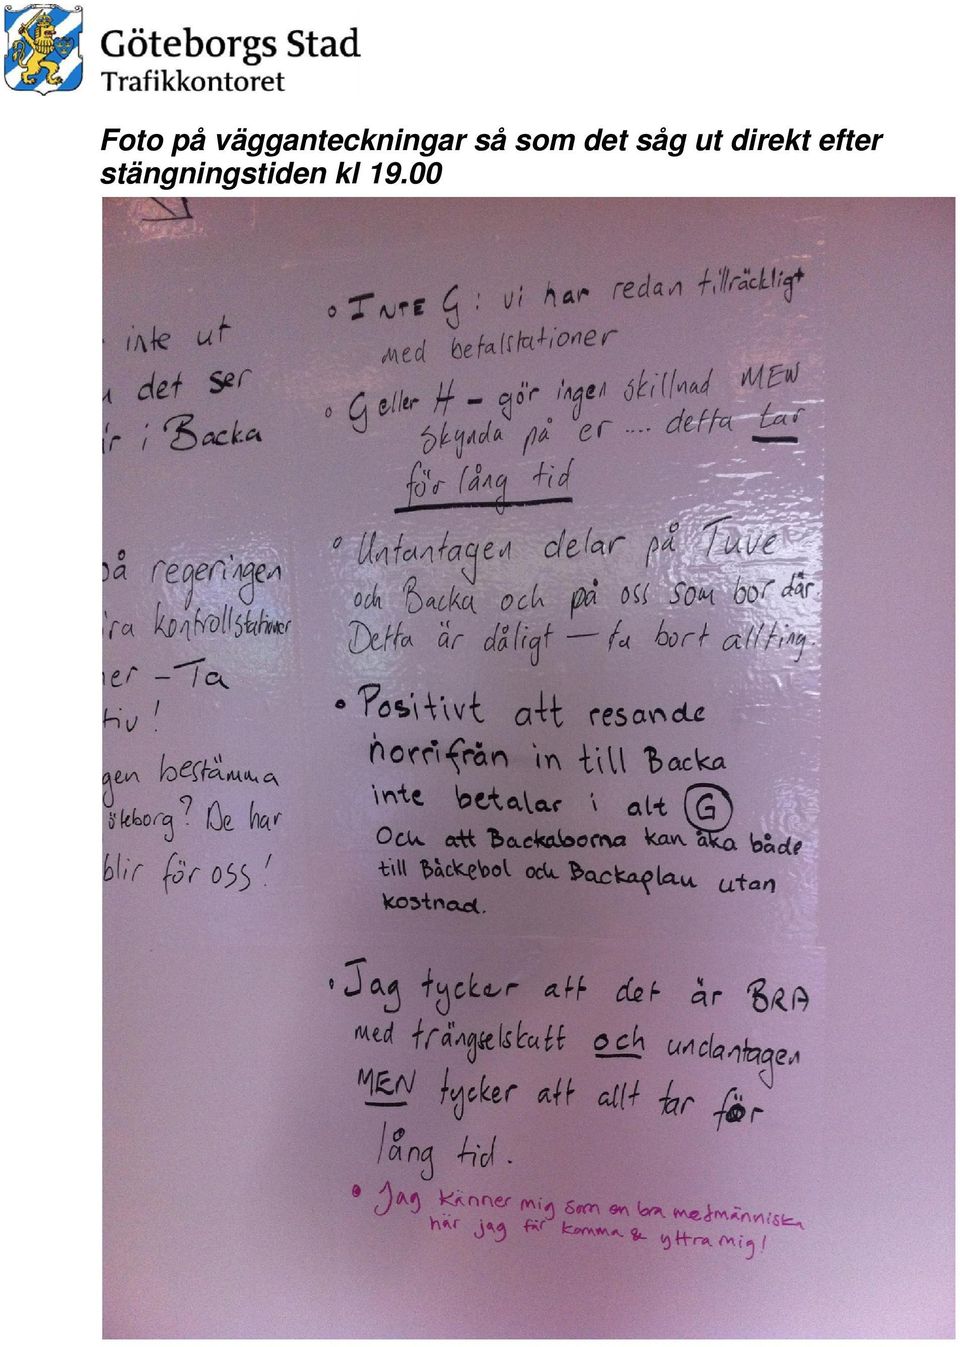 Göteborgs Stad
Trafikkontoret
Foto på vägganteckningar så som det såg ut direkt efter
stängningstiden kl 19.00
inte ut
det ser
i Backa
på regeringen
kontrollstationer
– Ta
bestämma
De har
blir för oss!
° INTE G : vi har redan tillräckligt
med betalstationer
° G eller H – gör ingen skillnad MEN
skynda på er .... detta tar
för lång tid
° Untantagen delar på Tuve
och Backa och på oss som bor där.
Detta är dåligt — ta bort allting.
• Positivt att resande
norrifrån in till Backa
inte betalar i alt G
Och att Backaborna kan åka både
till Bäckebol och Backaplan utan
kostnad.
• Jag tycker att det är BRA
med trängselskatt och undantagen
MEN tycker att allt tar för
lång tid.
• Jag känner mig som en bra medmänniska
när jag får komma & yttra mig!